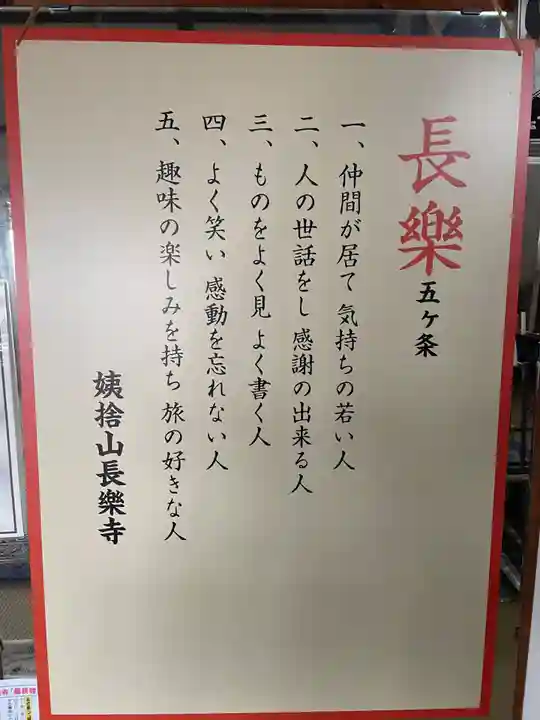 長樂五ヶ条
一、仲間が居て 気持ちの若い人
二、人の世話をし 感謝の出来る人
三、ものをよく見 よく書く人
四、よく笑い 感動を忘れない人
五、趣味の楽しみを持ち 旅の好きな人
姨捨山長樂寺